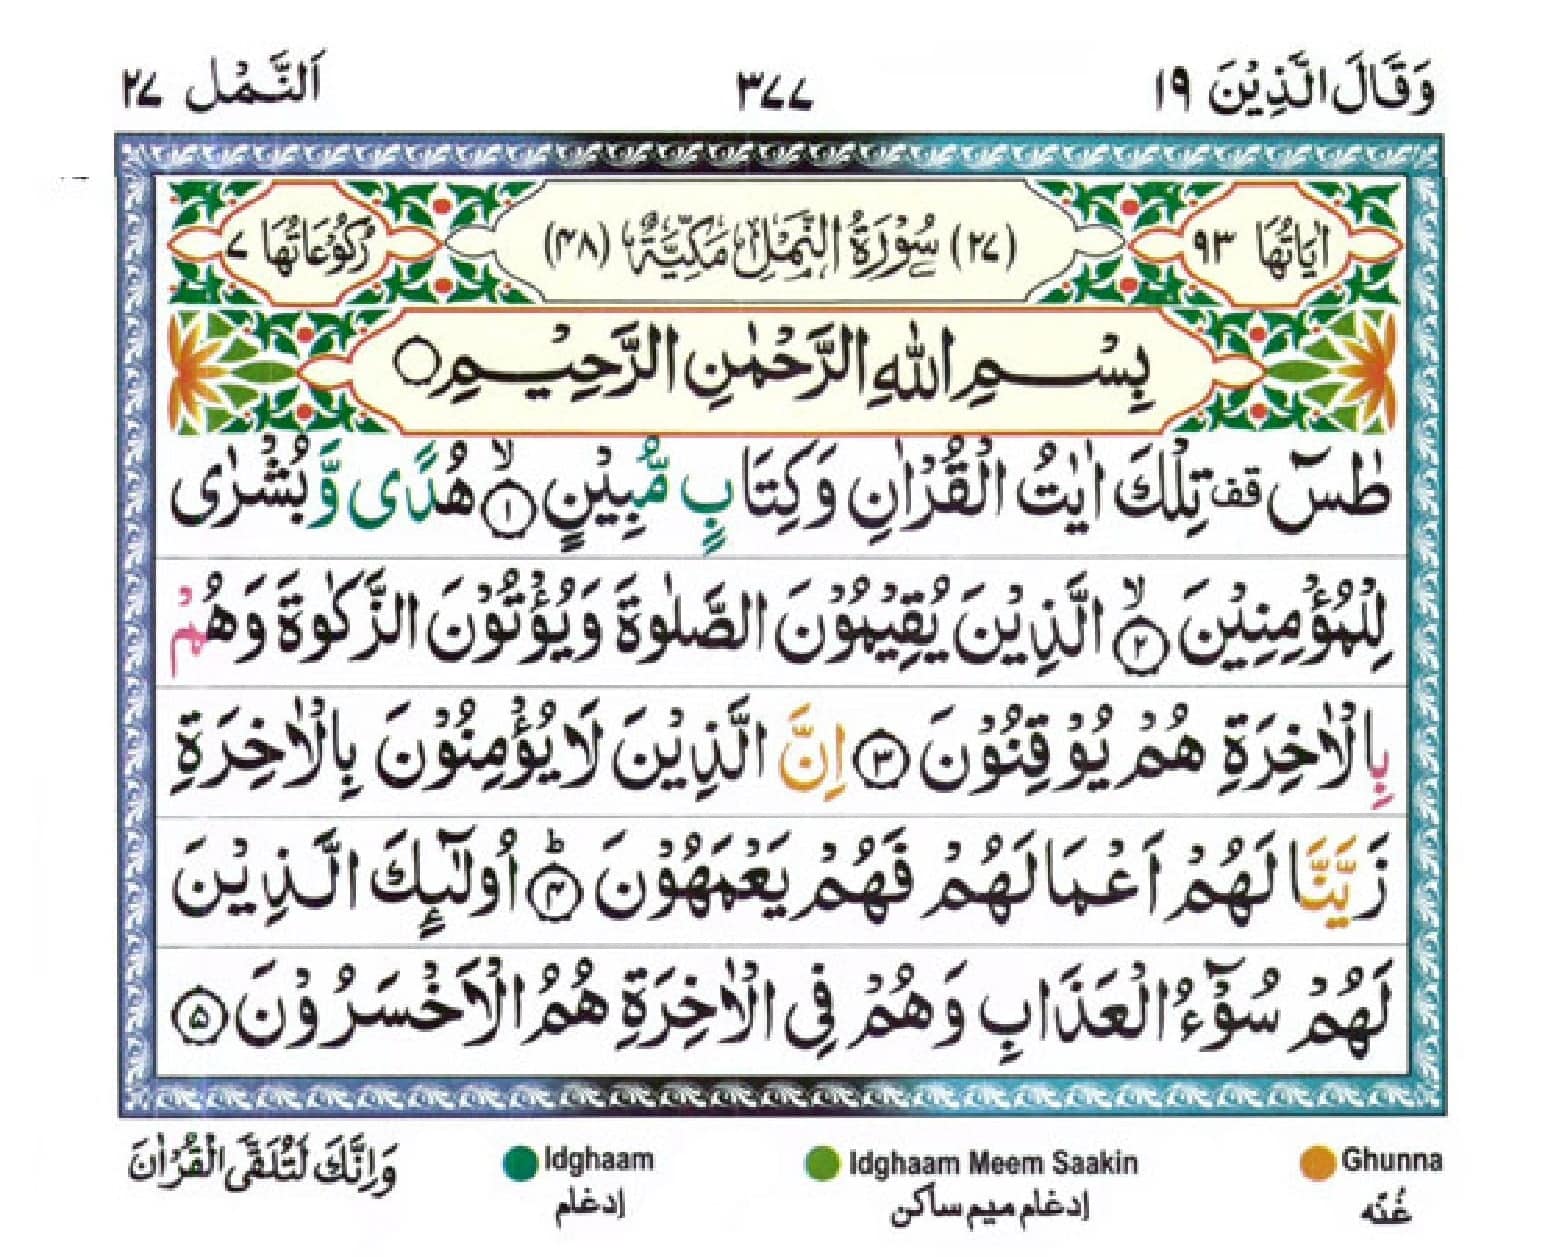 وَقَالَ الَّذِیْنَ ١٩
٣٧٧
اَلنَّمْل ٢٧
اٰیَاتُهَا ٩٣
(٢٧) سُوْرَةُ النَّمْلِ مَكِّیَّةٌ (٤٨)
رُكُوْعَاتُهَا ٧
بِسْمِ اللهِ الرَّحْمٰنِ الرَّحِیْمِ
طٰسٓ قف تِلْكَ اٰیٰتُ الْقُرْاٰنِ وَكِتَابٍ مُّبِیْنٍ ۙ﴿١﴾ هُدًی وَّبُشْرٰی
لِلْمُؤْمِنِیْنَ ۙ﴿٢﴾ الَّذِیْنَ یُقِیْمُوْنَ الصَّلٰوةَ وَیُؤْتُوْنَ الزَّكٰوةَ وَهُمْ
بِالْاٰخِرَةِ هُمْ یُوْقِنُوْنَ ﴿٣﴾ اِنَّ الَّذِیْنَ لَا یُؤْمِنُوْنَ بِالْاٰخِرَةِ
زَیَّنَّا لَهُمْ اَعْمَالَهُمْ فَهُمْ یَعْمَهُوْنَ ؕ﴿٤﴾ اُولٰٓىِٕكَ الَّذِیْنَ
لَهُمْ سُوْٓءُ الْعَذَابِ وَهُمْ فِی الْاٰخِرَةِ هُمُ الْاَخْسَرُوْنَ ﴿٥﴾
وَاِنَّكَ لَتُلَقَّی الْقُرْاٰنَ
Idghaam
إدغام
Idghaam Meem Saakin
إدغام میم ساكن
Ghunna
غُنّه